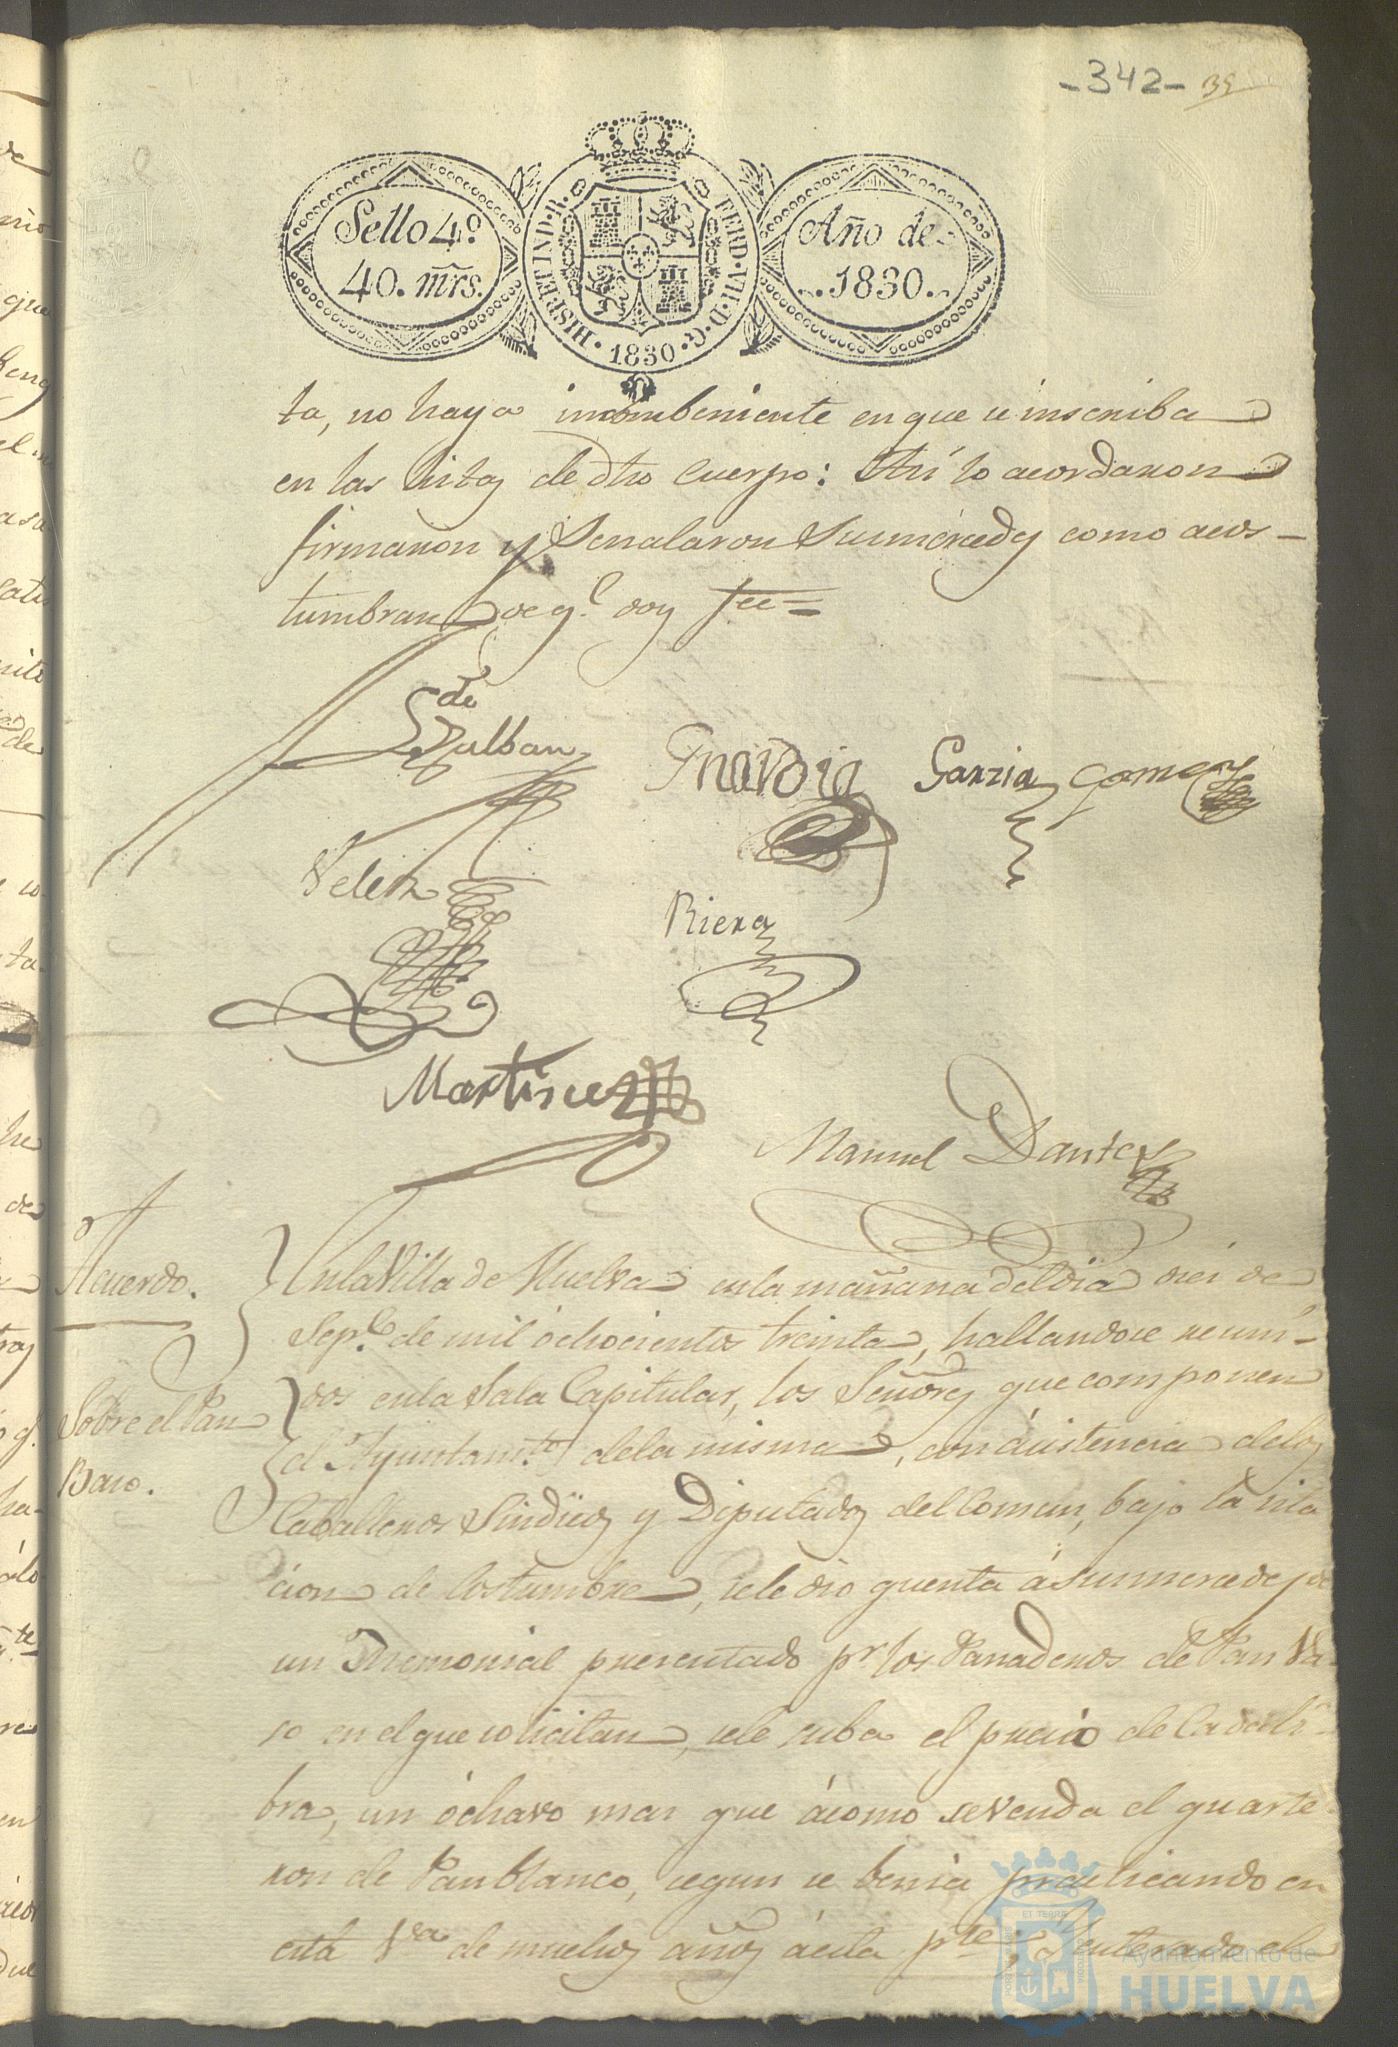 -342- 35
Sello 4º.
40. mrs.
HISP. ET IND. R.
FERD. VII. D. G.
1830
Año de
1830.
ta, no haya incombeniente en que se inscriba
en las listas de dho Cuerpo: Así lo acordaron
firmaron y Señalaron Sus mercedes como acos-
tumbran de q.e doy fee=
de
Zalban
Garzia Gomez
Velez
Riera
Martinez
Manuel Dantes
Acuerdo.
Sobre el Pan
Bazo.
En la Villa de Huelva en la mañana del dia seis de
Sep.e de mil óchocientos treinta, hallandose reuni-
dos en la Sala Capitular, los Señores que componen
el Ayuntam.to de la misma, con ásistencia de los
Caballeros Sindicos y Diputados del Comun, bajo la sita
cion de Costumbre, se le dio quenta á sus mercedes de
un Memorial presentado pr los Panaderos de Pan Ba-
so en el que solicitan, se le suba el precio de Cada li-
bra, un óchavo mas que ácomo se venda el quarte-
ron de Pan blanco, segun se benia practicando en
esta V.a de muchos años á esta pte; Y enterado el
Ayuntamiento de
HUELVA